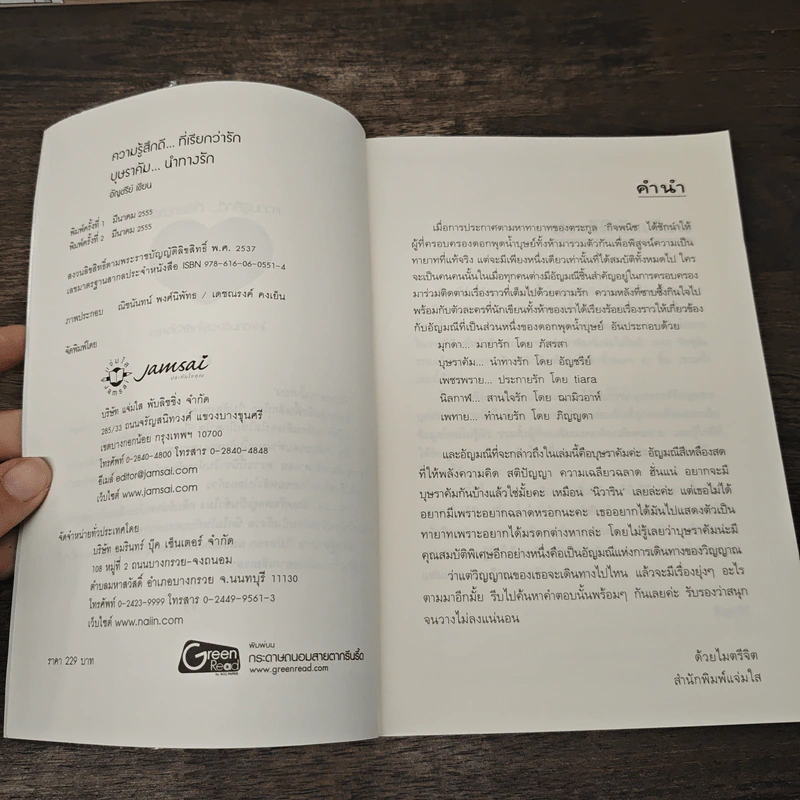 ความรู้สึกดี... ที่เรียกว่ารัก
บุษราคัม... นำทางรัก
อัญชรีย์ เขียน
พิมพ์ครั้งที่ 1 มีนาคม 2555
พิมพ์ครั้งที่ 2 มีนาคม 2555
สงวนลิขสิทธิ์ตามพระราชบัญญัติลิขสิทธิ์ พ.ศ. 2537
เลขมาตรฐานสากลประจำหนังสือ ISBN 978-616-06-0551-4
ภาพประกอบ ณิชนันทน์ พงศ์นิพัทธ / เดชณรงค์ คงเย็น
จัดพิมพ์โดย
Jamsai
บริษัท แจ่มใส พับลิชชิ่ง จำกัด
285/33 ถนนจรัญสนิทวงศ์ แขวงบางขุนศรี
เขตบางกอกน้อย กรุงเทพฯ 10700
โทรศัพท์ 0-2840-4800 โทรสาร 0-2840-4848
อีเมล์ editor@jamsai.com
เว็บไซต์ www.jamsai.com
จัดจำหน่ายทั่วประเทศโดย
บริษัท อมรินทร์ บุ๊ค เซ็นเตอร์ จำกัด
108 หมู่ที่ 2 ถนนบางกรวย-จงถนอม
ตำบลมหาสวัสดิ์ อำเภอบางกรวย จ.นนทบุรี 11130
โทรศัพท์ 0-2423-9999 โทรสาร 0-2449-9561-3
เว็บไซต์ www.naiin.com
ราคา 229 บาท
Green Read
พิมพ์บน
กระดาษถนอมสายตากรีนรี้ด
www.greenread.com
คำนำ
เมื่อการประกาศตามหาทายาทของตระกูล 'กิจพนิช' ได้ชักนำให้
ผู้ที่ครอบครองดอกพุดน้ำบุษย์ทั้งห้ามารวมตัวกันเพื่อพิสูจน์ความเป็น
ทายาทที่แท้จริง แต่จะมีเพียงหนึ่งเดียวเท่านั้นที่ได้สมบัติทั้งหมดไป ใคร
จะเป็นคนคนนั้นในเมื่อทุกคนต่างมีอัญมณีชิ้นสำคัญอยู่ในการครอบครอง
มาร่วมติดตามเรื่องราวที่เต็มไปด้วยความรัก ความหลังที่ซาบซึ้งกินใจไป
พร้อมกับตัวละครที่นักเขียนทั้งห้าของเราได้เรียงร้อยเรื่องราวให้เกี่ยวข้อง
กับอัญมณีที่เป็นส่วนหนึ่งของดอกพุดน้ำบุษย์ อันประกอบด้วย
มุกดา... มายารัก โดย ภัสรสา
บุษราคัม... นำทางรัก โดย อัญชรีย์
เพชรพราย... ประกายรัก โดย tiara
นิลกาฬ... สานใจรัก โดย ฌามิวอาห์
เพทาย... ทำนายรัก โดย ภิญญดา
และอัญมณีที่จะกล่าวถึงในเล่มนี้คือบุษราคัมค่ะ อัญมณีสีเหลืองสด
ที่ให้พลังความคิด สติปัญญา ความเฉลียวฉลาด ฮั่นแน่ อยากจะมี
บุษราคัมกันบ้างแล้วใช่มั้ยคะ เหมือน 'นิวาริน' เลยล่ะค่ะ แต่เธอไม่ได้
อยากมีเพราะอยากฉลาดหรอกนะคะ เธออยากได้มันไปแสดงตัวเป็น
ทายาทเพราะอยากได้มรดกต่างหากล่ะ โดยไม่รู้เลยว่าบุษราคัมน่ะมี
คุณสมบัติพิเศษอีกอย่างหนึ่งคือเป็นอัญมณีแห่งการเดินทางของวิญญาณ
ว่าแต่วิญญาณของเธอจะเดินทางไปไหน แล้วจะมีเรื่องยุ่งๆ อะไร
ตามมาอีกมั้ย รีบไปค้นหาคำตอบนั้นพร้อมๆ กันเลยค่ะ รับรองว่าสนุก
จนวางไม่ลงแน่นอน
ด้วยไมตรีจิต
สำนักพิมพ์แจ่มใส